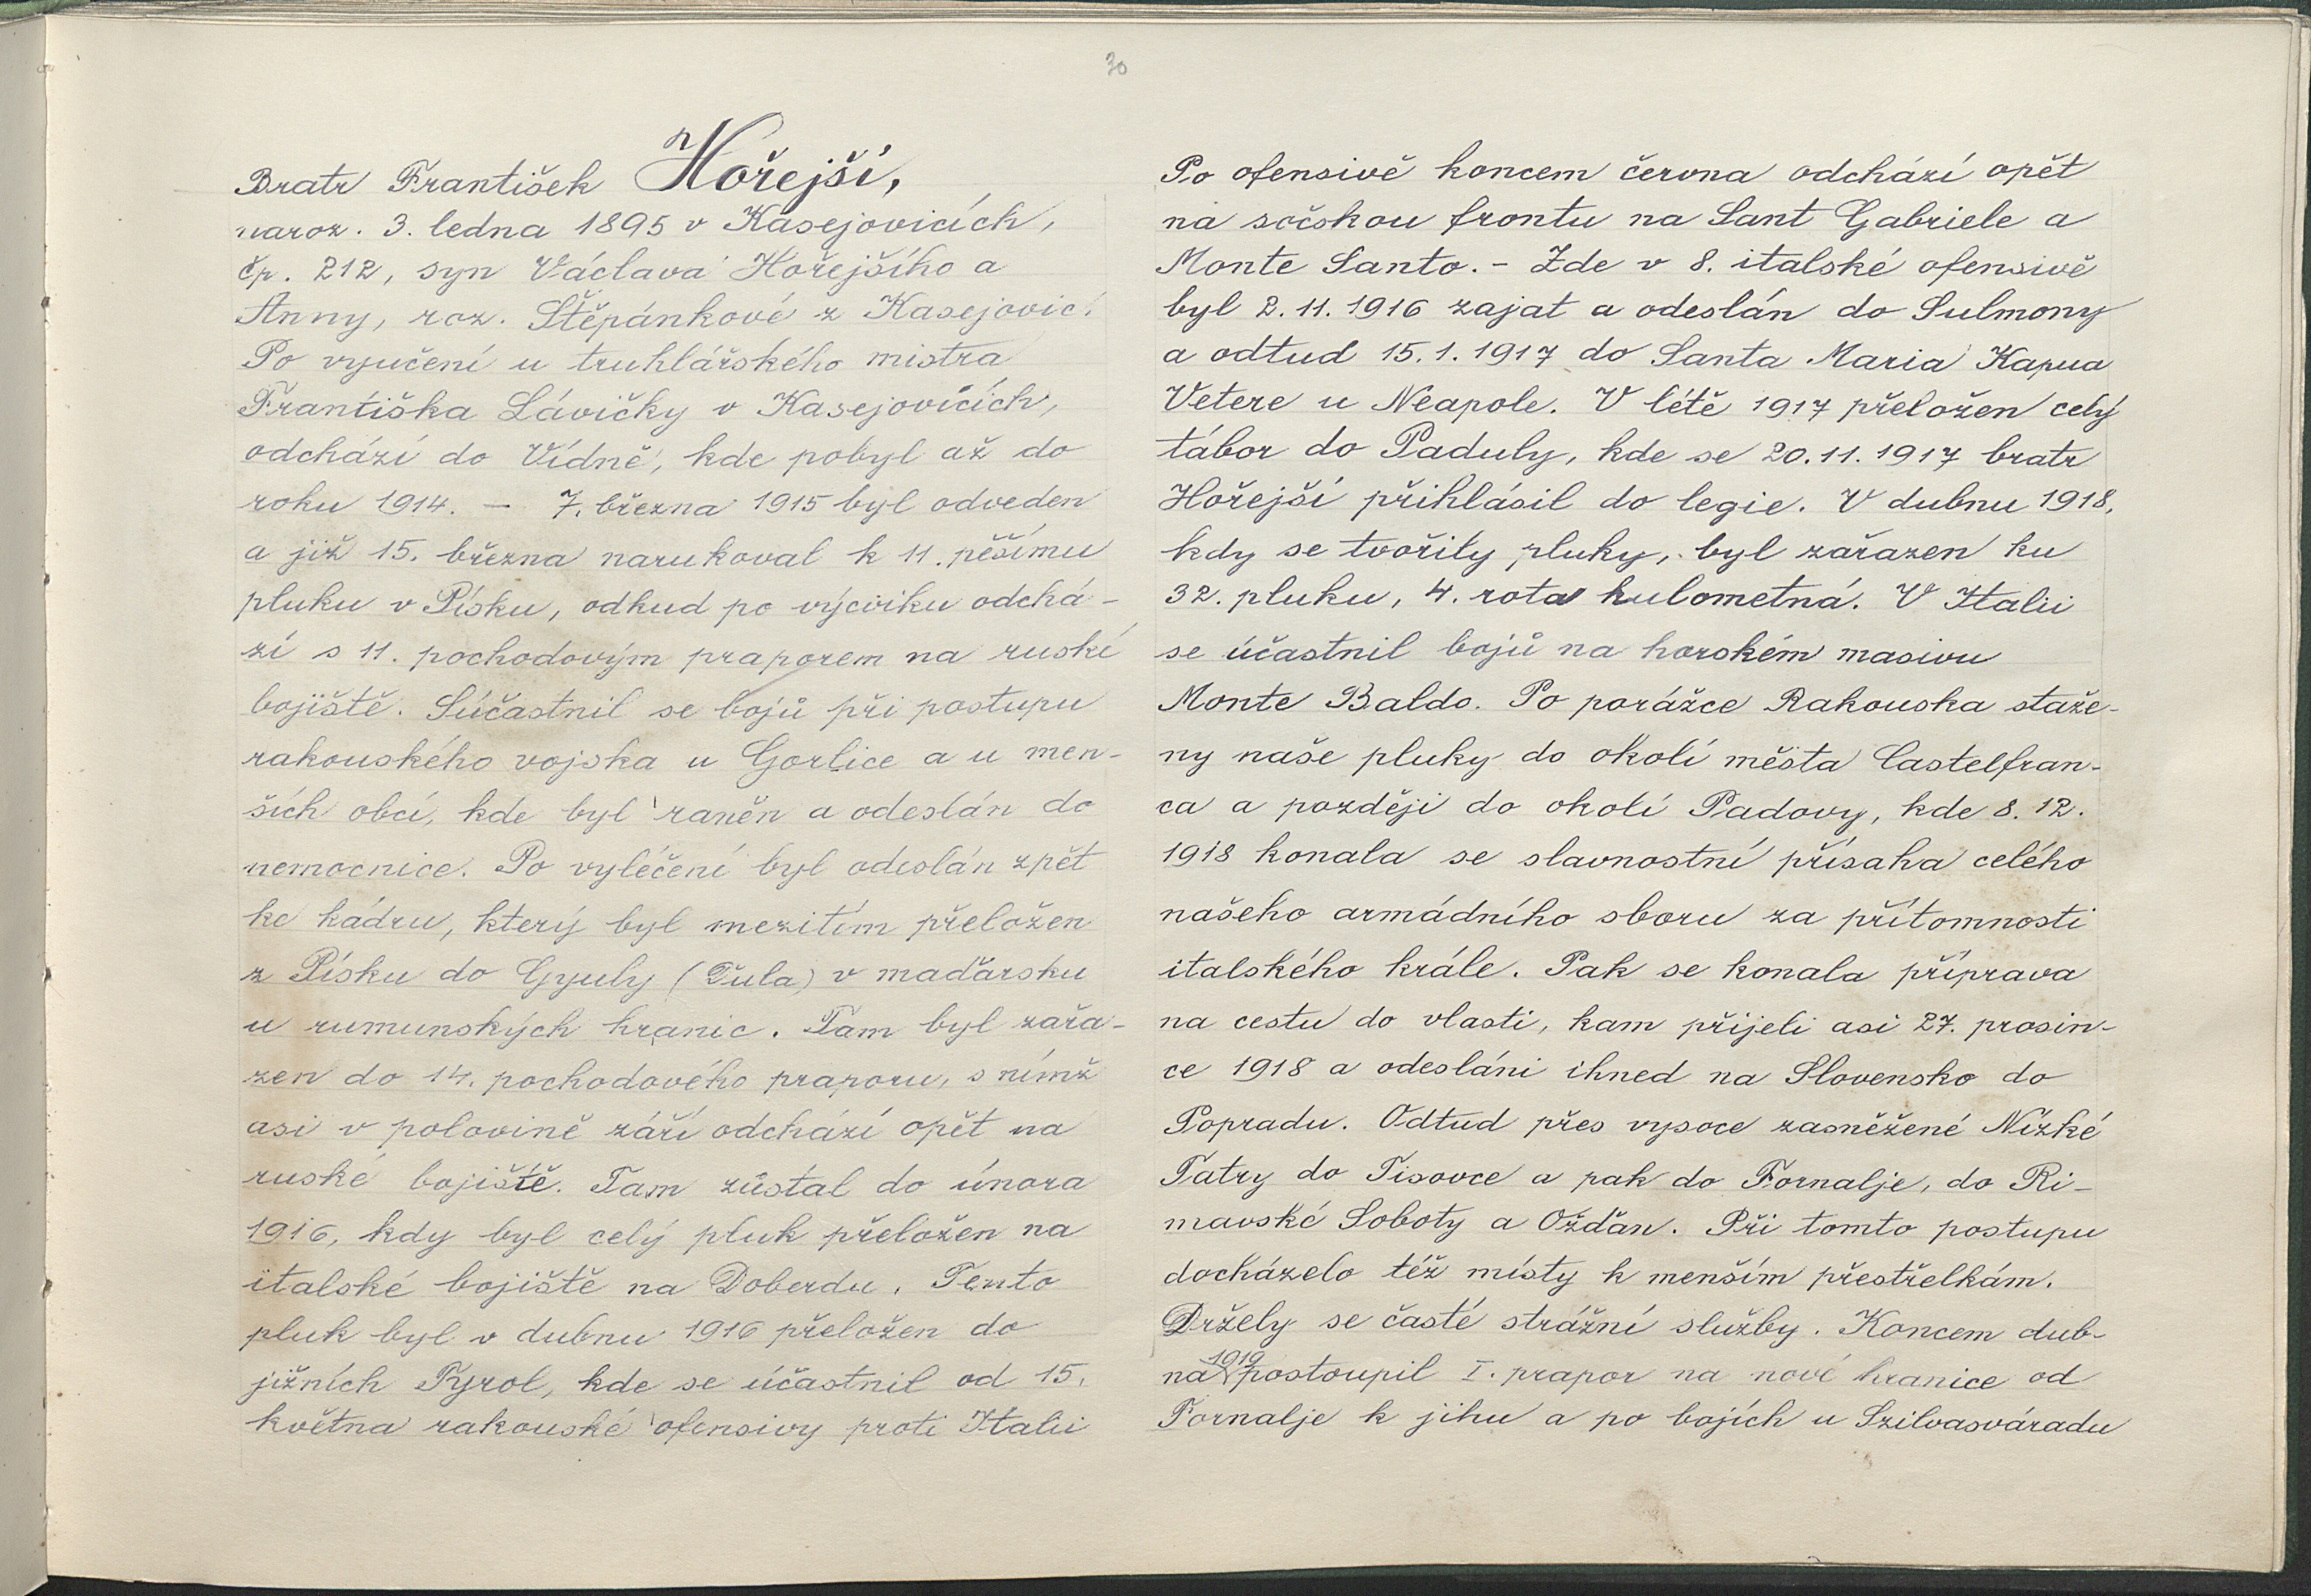 30
Bratr František Hořejší,
naroz. 3. ledna 1895 v Kasejovicích,
čp. 212, syn Václava Hořejšího a
Anny, roz. Štěpánkové z Kasejovic.
Po vyučení u truhlářského mistra
Františka Lávičky v Kasejovicích,
odchází do Vídně, kde pobyl až do
roku 1914. – 7. března 1915 byl odveden
a již 15. března narukoval k 11. pěšímu
pluku v Písku, odkud po výcviku odchá-
zí s 11. pochodovým praporem na ruské
bojiště. Súčastnil se bojů při postupu
rakouského vojska u Gorlice a u men-
ších obcí, kde byl raněn a odeslán do
nemocnice. Po vyléčení byl odeslán zpět
ke kádru, který byl mezitím přeložen
z Písku do Gyuly (Ďula) v maďarsku
u rumunských hranic. Tam byl zařa-
zen do 14. pochodového praporu, s nímž
asi v polovině září odchází opět na
ruské bojiště. Tam zůstal do února
1916, kdy byl celý pluk přeložen na
italské bojiště na Doberdu. Tento
pluk byl v dubnu 1916 přeložen do
jižních Tyrol, kde se účastnil od 15.
května rakouské ofensivy proti Italii
Po ofensivě koncem června odchází opět
na sočskou frontu na Sant Gabriele a
Monte Santo. – Zde v 8. italské ofensivě
byl 2. 11. 1916 zajat a odeslán do Sulmony
a odtud 15. 1. 1917 do Santa Maria Kapua
Vetere u Neapole. V létě 1917 přeložen celý
tábor do Paduly, kde se 20. 11. 1917 bratr
Hořejší přihlásil do legie. V dubnu 1918,
kdy se tvořily pluky, byl zařazen ku
32. pluku, 4. rota kulometná. V Italii
se účastnil bojů na horském masivu
Monte Baldo. Po porážce Rakouska staže-
ny naše pluky do okolí města Castelfran-
ca a později do okolí Padovy, kde 8. 12.
1918 konala se slavnostní přísaha celého
našeho armádního sboru za přítomnosti
italského krále. Pak se konala příprava
na cestu do vlasti, kam přijeli asi 27. prosin-
ce 1918 a odesláni ihned na Slovensko do
Popradu. Odtud přes vysoce zasněžené Nízké
Tatry do Tisovce a pak do Fornalje, do Ri-
mavské Soboty a Ožďan. Při tomto postupu
docházelo též místy k menším přestřelkám.
Držely se časté strážní služby. Koncem dub-
na 1919 postoupil I. prapor na nové hranice od
Fornalje k jihu a po bojích u Szilvasváradu